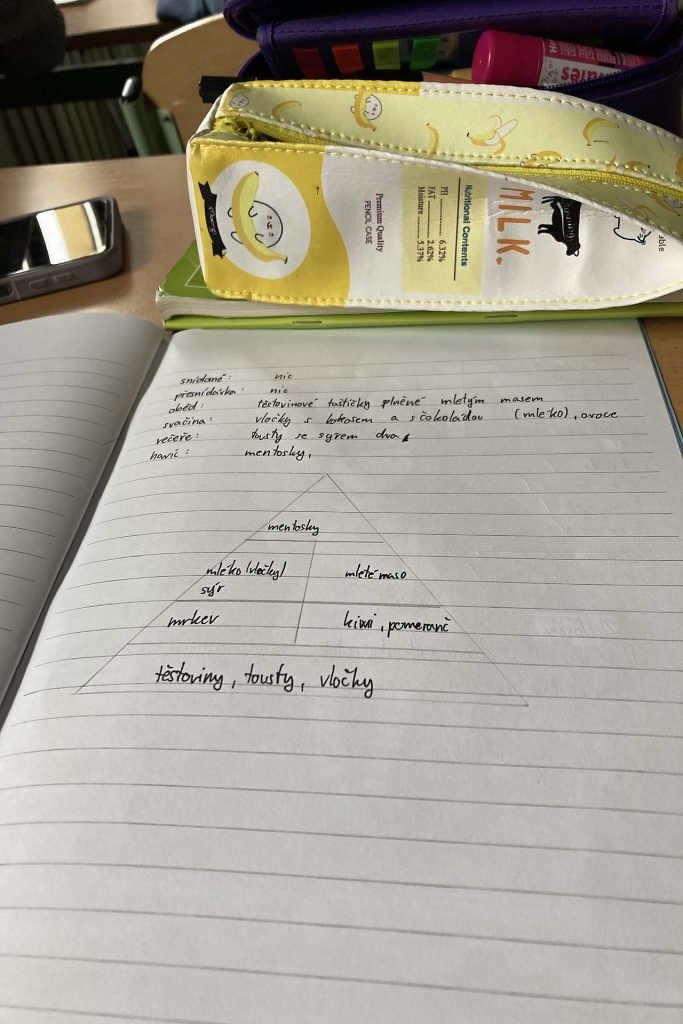 MILK.
Nutritional Contents
PH 6.32%
FAT 2.62%
Moisture 5.37%
Premium Quality
PENCIL CASE
snídaně: nic
přesnídávka: nic
oběd: těstovinové taštičky plněné mletým masem
svačina: vločky s kokosem a s čokoládou (mléko), ovoce
večeře: tousty se sýrem dva
navíc: mentosky,
mentosky
mléko (vločky) mleté maso
sýr
mrkev kiwi, pomeranč
těstoviny, tousty, vločky